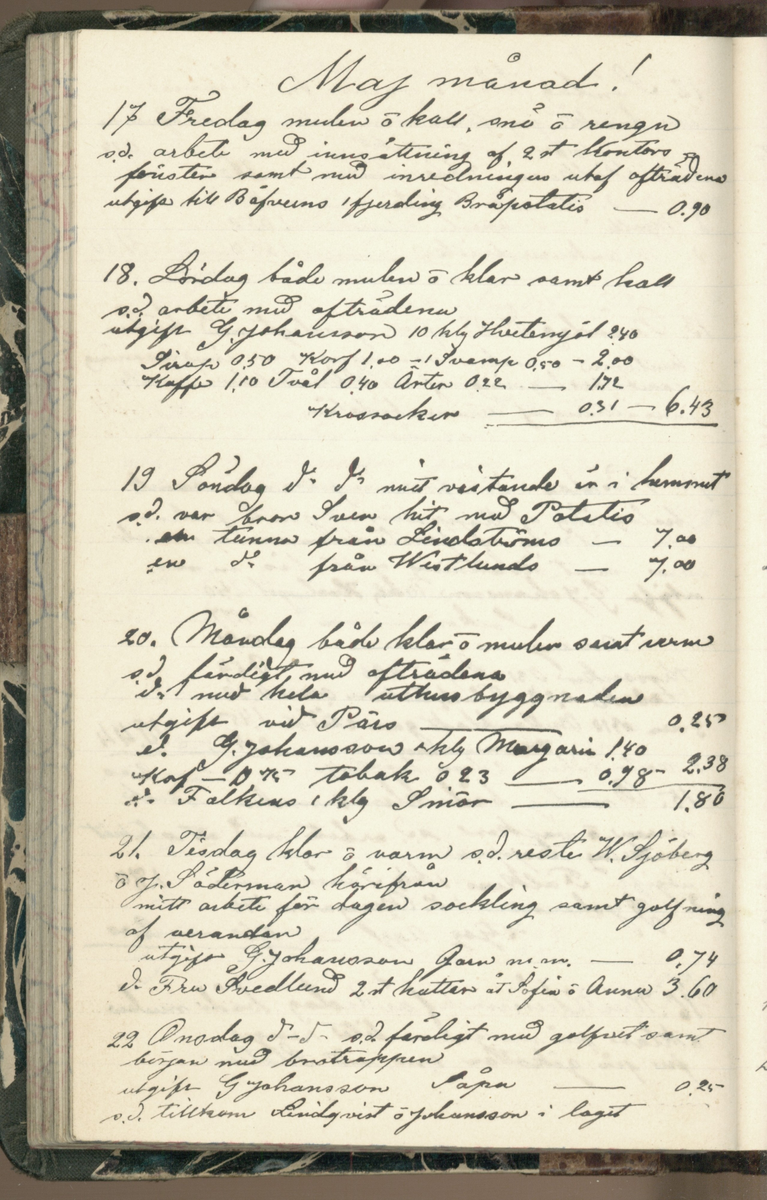 Maj månad!
17 Fredag mulen ö kall, snö ö rengn
s.d. arbete med innsättning af 2 st kontors
fönster samt med inredningen utaf afträdena
utgift till Bäfverns 1 fjerding Bråpotatis — 0.90
18. Lördag både mulen ö klar samt kall
s.d. arbete med afträdena
utgift G. Johansson 10 klg Hvetemjöl 240
Sirap 0.50 Korf 1.00 - 1 Svamp 0.50 - 2.00
Kaffe 1.10 Tvål 0.40 Ärter 0.22 — 1.72
Krossocker — 0.31 — 6.43
19 Söndag d:o d:o mitt vistande är i hemmet
s.d. var bror Sven hit med Potatis
en tunna från Lindströms — 7.00
en d:o från Westlunds — 7.00
20. Måndag både klar ö mulen samt varm
s.d. färdigt med afträdena
d:o med hela uthusbyggnaden
utgift vid Pärs 0.25
d. G. Johansson 1 klg Margarin 1.40
Kaf — 0.75 tobak 0 23 — 0.98 - 2.38
d:o Falkens 1 klg Smör — 1.80
21. Tisdag klar ö varm s.d. reste W. Sjöberg
ö J. Söderman härifrån
mitt arbete för dagen sockling samt golfning
af verandan
utgift G. Johansson Garn m.m. — 0.74
d:o Fru Svedlund 2 st hattar åt Sofia ö Anna 3.60
22 Onsdag d-d- s.d. färdigt med golfvet samt
början med brotrappen
utgift G Johansson Såpa — 0.25
s.d. tillkom Lindqvist ö Johansson i laget